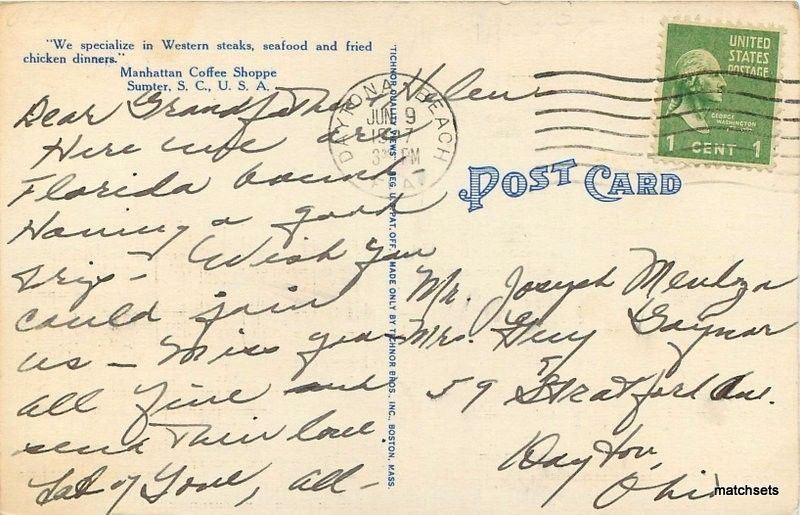 "We specialize in Western steaks, seafood and fried
chicken dinners."
Manhattan Coffee Shoppe
Sumter, S. C., U. S. A.
Dear Grandfather, Helen
Here we are
Florida bound
Having a good
trip - Wish you
could join
us - Miss you
all fine and
send their love
of Love, all-
TICHNOR QUALITY VIEWS, REG. U. S. PAT. OFF. MADE ONLY BY TICHNOR BROS., INC., BOSTON, MASS.
DAYTONA BEACH
JUN 9
PM
UNITED
STATES
POSTAGE
GEORGE
WASHINGTON
1 CENT 1
POST CARD
Mr. Joseph Mendoza
Mrs. Guy Gaynor
59 Stratford Ave.
Dayton,
Ohio
matchsets